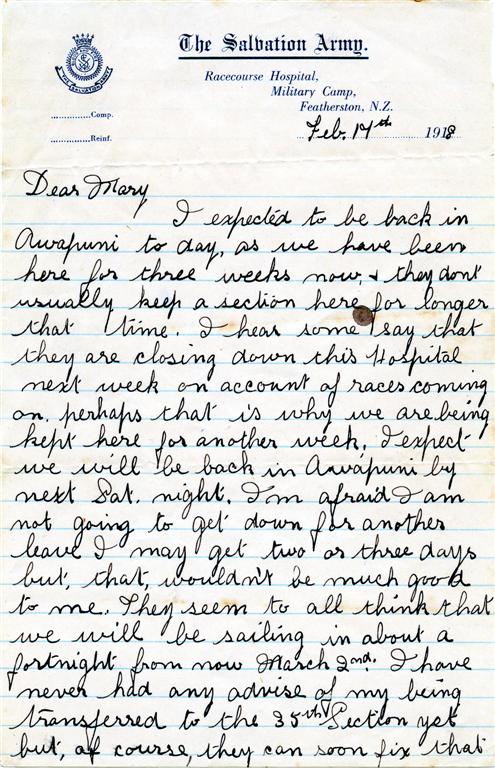 The Salvation Army.
Racecourse Hospital,
Military Camp,
Featherston, N.Z.
..............Comp.
..............Reinf.
Feb. 17th 1918
Dear Mary
I expected to be back in
Awapuni to day, as we have been
here for three weeks now, & they don't
usually keep a section here for longer
that time. I hear some say that
they are closing down this Hospital
next week on account of races coming
on. perhaps that is why we are being
kept here for another week, I expect
we will be back in Awapuni by
next Sat. night. I'm afraid I am
not going to get down for another
leave I may get two or three days
but, that, wouldn't be much good
to me. They seem to all think that
we will be sailing in about a
fortnight from now March 2nd. I have
never had any advise of my being
transferred to the 35th Section yet
but, of course, they can soon fix that